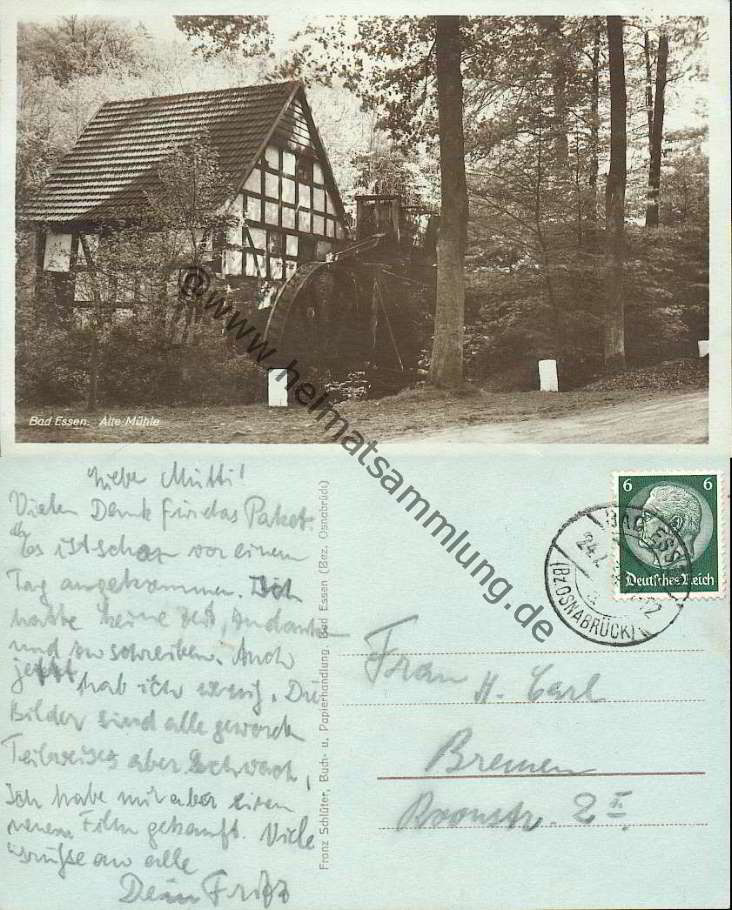 Bad Essen. Alte Mühle
©www.heimatsammlung.de
Liebe Mutti!
Vielen Dank für das Paket.
Es ist schon vor einem
Tag angekommen. Ich
hatte keine Zeit,
und zu schreiben. Auch
jetzt hab ich wenig. Die
Bilder sind alle geworden
Teilweises aber schwach,
Ich habe mir aber einen
neuen Film gekauft. Viele
Grüße an alle
Dein Fritz
Franz Schlüter, Buch- u. Papierhandlung, Bad Essen (Bez. Osnabrück)
6 6
Deutsches Reich
BAD ESSEN
24.
(BZ OSNABRÜCK)
Frau
H. Carl
Bremen
Roonstr. 2 II.